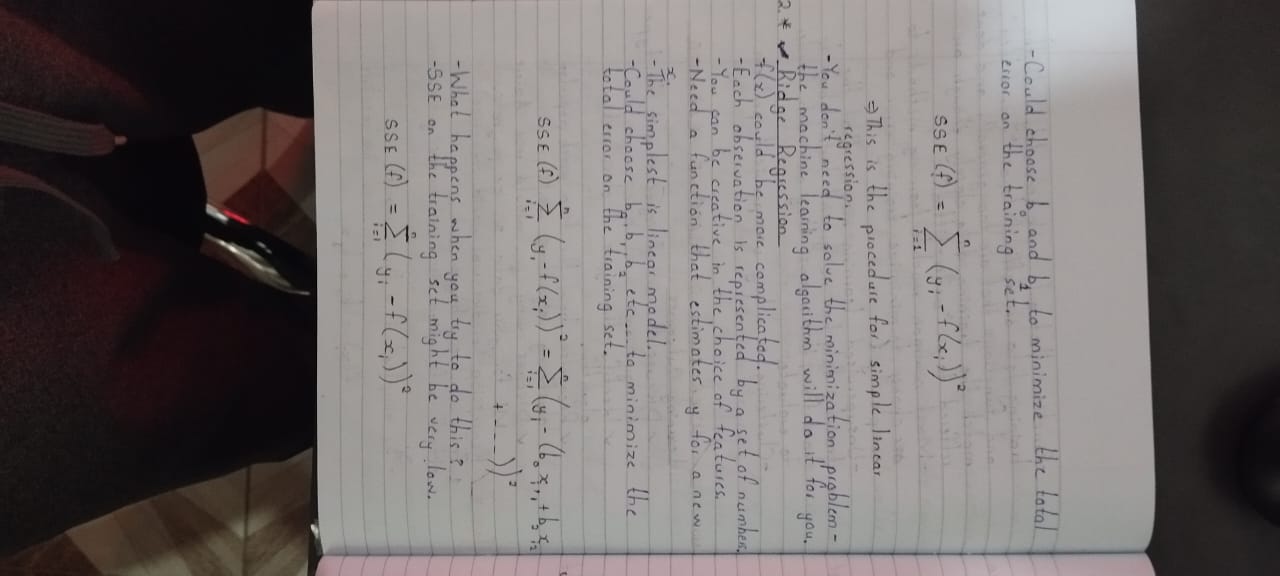 - Could choose b₀ and b₁ to minimize the total
error on the training set.
SSE (f) = Σⁿᵢ₌₁ (yᵢ - f(xᵢ))²
⇒ This is the procedure for simple linear
regression.
- You don't need to solve the minimization problem -
the machine learning algorithm will do it for you.
2. * Ridge Regression
- f(x) could be more complicated.
- Each observation is represented by a set of number.
- You can be creative in the choice of features.
- Need a function that estimates y for a new
x.
- The simplest is linear model.
- Could choose b₀, b₁, b₂ etc... to minimize the
total error on the training set.
SSE (f) Σⁿᵢ₌₁ (yᵢ - f(xᵢ))² = Σⁿᵢ₌₁ (yᵢ - (b₀xᵢ,₁ + b₂xᵢ₂
+ ----))²
- What happens when you try to do this?
- SSE on the training set might be very low.
SSE (f) = Σⁿᵢ₌₁ (yᵢ - f(xᵢ))²